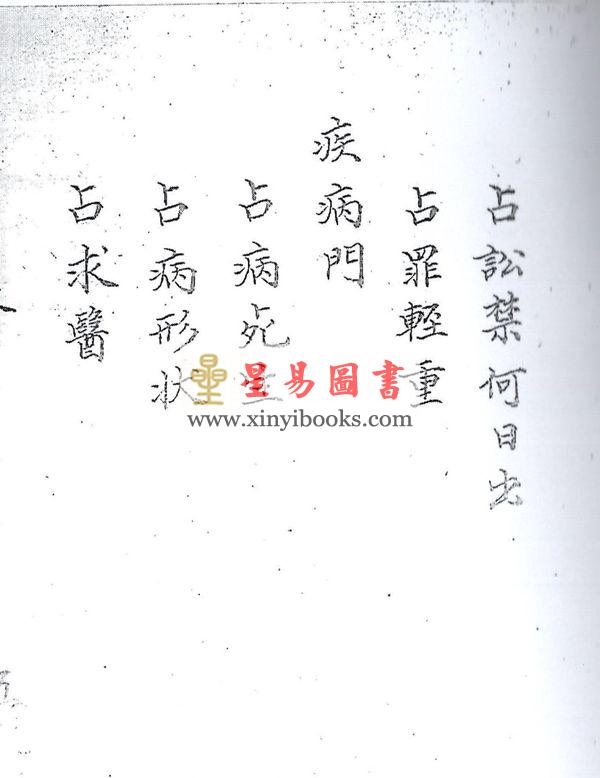 占訟禁何日出
占罪輕重
疾病門
占病死生
占病形狀
占求醫
星易圖書
www.xinyibooks.com